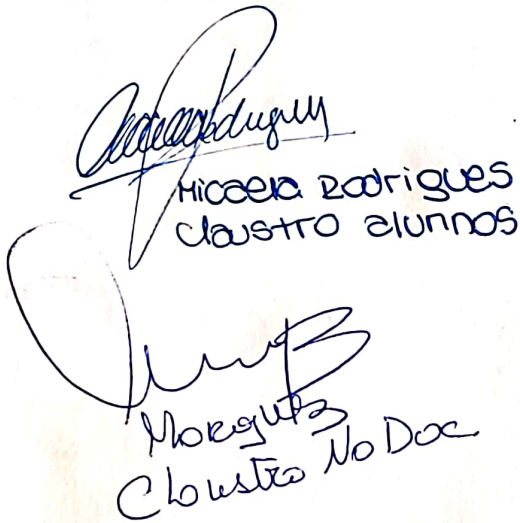 Micaela Rodrigues
Claustro alumnos
Marquez
Claustro No Doc